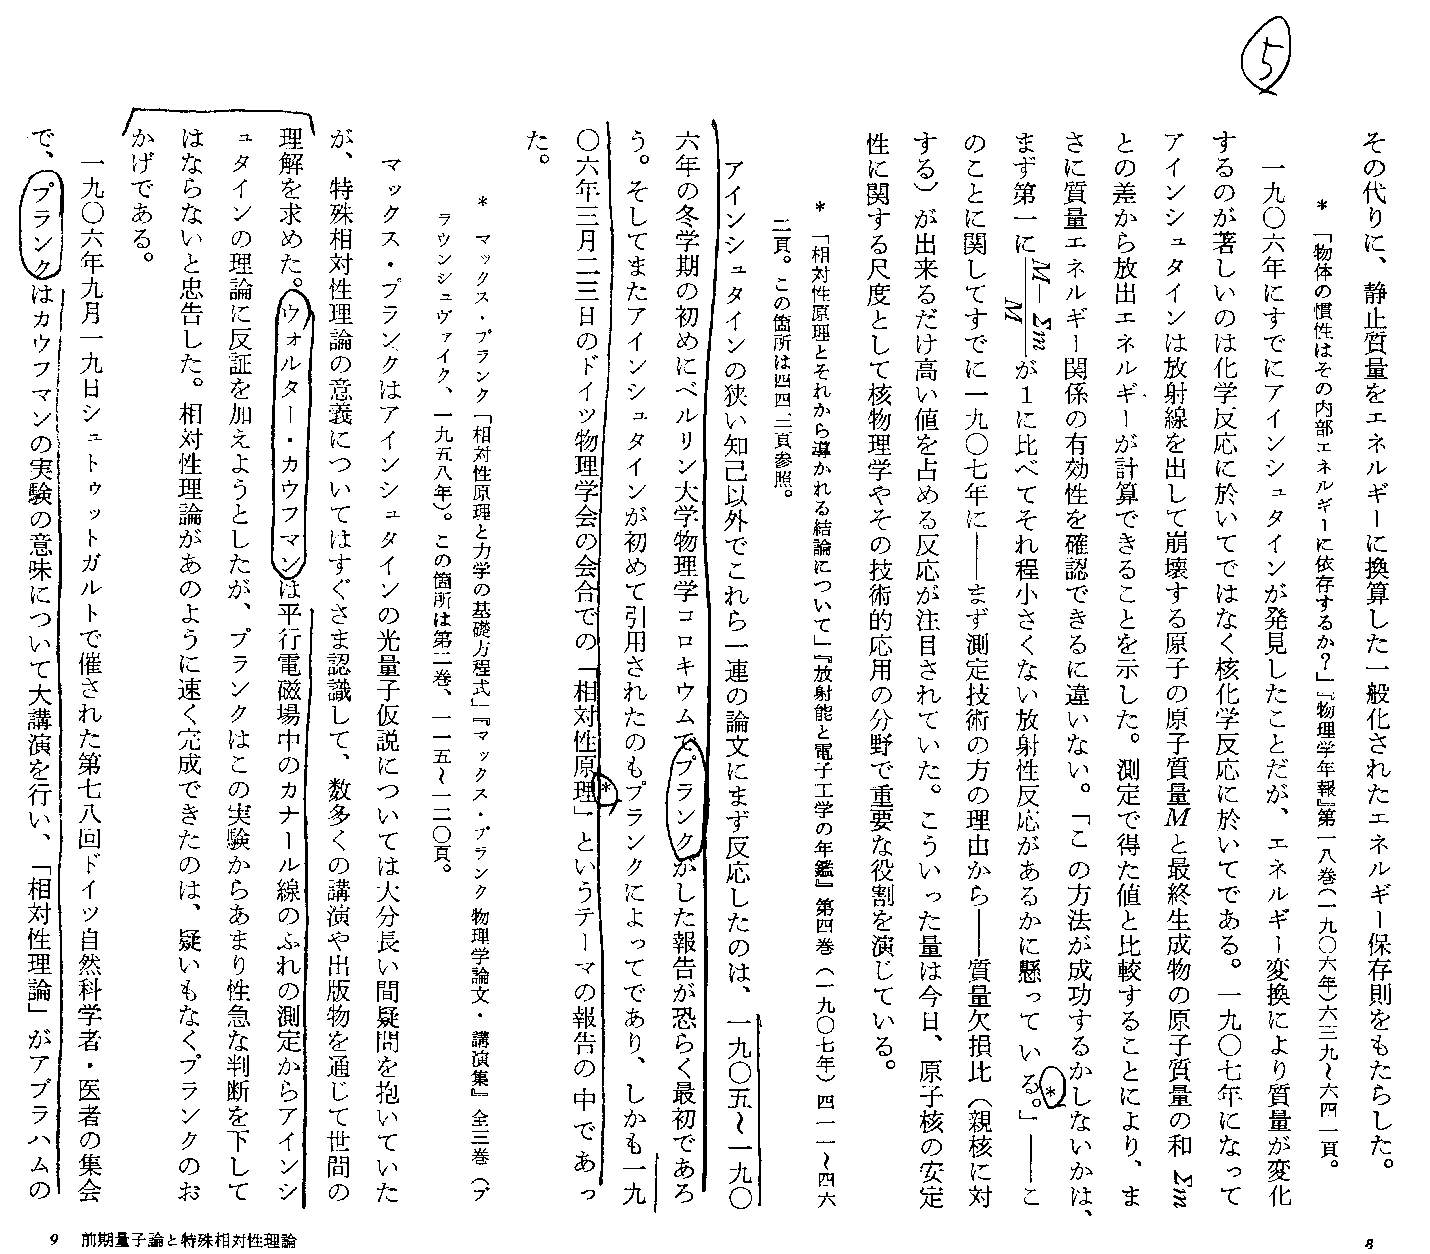 ⑤
その代りに、静止質量をエネルギーに換算した一般化されたエネルギー保存則をもたらした。
* 「物体の慣性はその内部エネルギーに依存するか?」『物理学年報』第一八巻(一九〇六年)六三九〜六四一頁。
一九〇六年にすでにアインシュタインが発見したことだが、エネルギー変換により質量が変化
するのが著しいのは化学反応に於いてではなく核化学反応に於いてである。一九〇七年になって
アインシュタインは放射線を出して崩壊する原子の原子質量Mと最終生成物の原子質量の和 Σm
との差から放出エネルギーが計算できることを示した。測定で得た値と比較することにより、ま
さに質量エネルギー関係の有効性を確認できるに違いない。「この方法が成功するかしないかは、
まず第一に (M − Σm)/M が1に比べてそれ程小さくない放射性反応があるかに懸っている。*」――こ
のことに関してすでに一九〇七年に――まず測定技術の方の理由から――質量欠損比(親核に対
する)が出来るだけ高い値を占める反応が注目されていた。こういった量は今日、原子核の安定
性に関する尺度として核物理学やその技術的応用の分野で重要な役割を演じている。
* 「相対性原理とそれから導かれる結論について」『放射能と電子工学の年鑑』第四巻(一九〇七年)四一一〜四六
二頁。この箇所は四四二頁参照。
アインシュタインの狭い知己以外でこれら一連の論文にまず反応したのは、一九〇五〜一九〇
六年の冬学期の初めにベルリン大学物理学コロキウムでプランクがした報告が恐らく最初であろ
う。そしてまたアインシュタインが初めて引用されたのもプランクによってであり、しかも一九
〇六年三月二三日のドイツ物理学会の会合での「相対性原理*」というテーマの報告の中であっ
た。
* マックス・プランク「相対性原理と力学の基礎方程式」『マックス・プランク 物理学論文・講演集』全三巻(ブ
ラウンシュヴァイク、一九五八年)。この箇所は第二巻、一一五〜一二〇頁。
マックス・プランクはアインシュタインの光量子仮説については大分長い間疑問を抱いていた
が、特殊相対性理論の意義についてはすぐさま認識して、数多くの講演や出版物を通じて世間の
理解を求めた。ウォルター・カウフマンは平行電磁場中のカナール線のふれの測定からアインシ
ュタインの理論に反証を加えようとしたが、プランクはこの実験からあまり性急な判断を下して
はならないと忠告した。相対性理論があのように速く完成できたのは、疑いもなくプランクのお
かげである。
一九〇六年九月一九日シュトゥットガルトで催された第七八回ドイツ自然科学者・医者の集会
で、プランクはカウフマンの実験の意味について大講演を行い、「相対性理論」がアブラハムの
9 前期量子論と特殊相対性理論
8